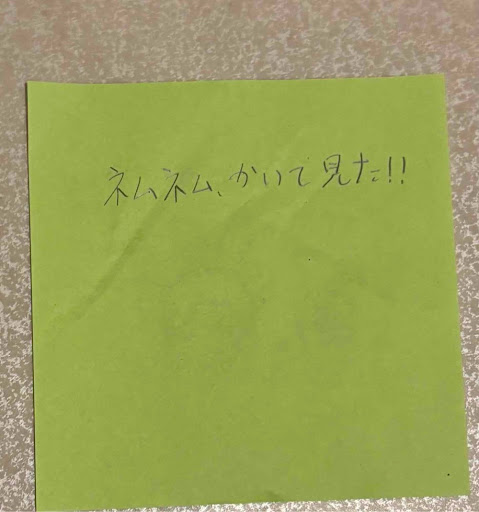 ネムネム、かいて見た!!